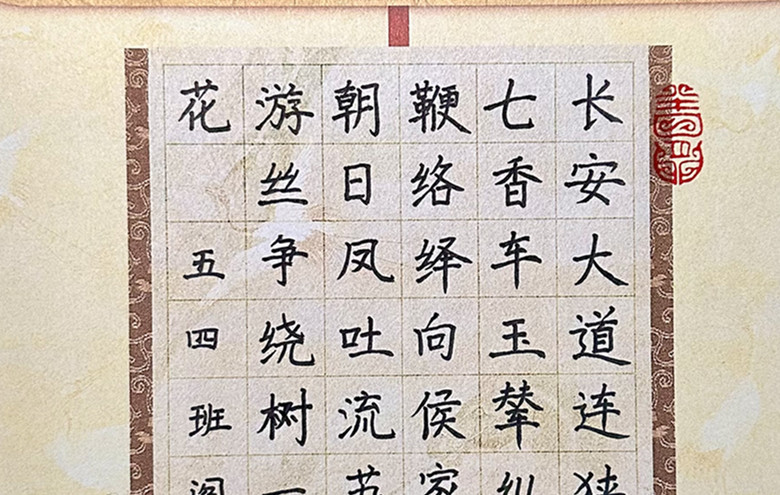 长安大道连狭
七香车玉辇纵
鞭络绎向侯家
朝日凤吐流苏
游丝争绕树一
花 五四班